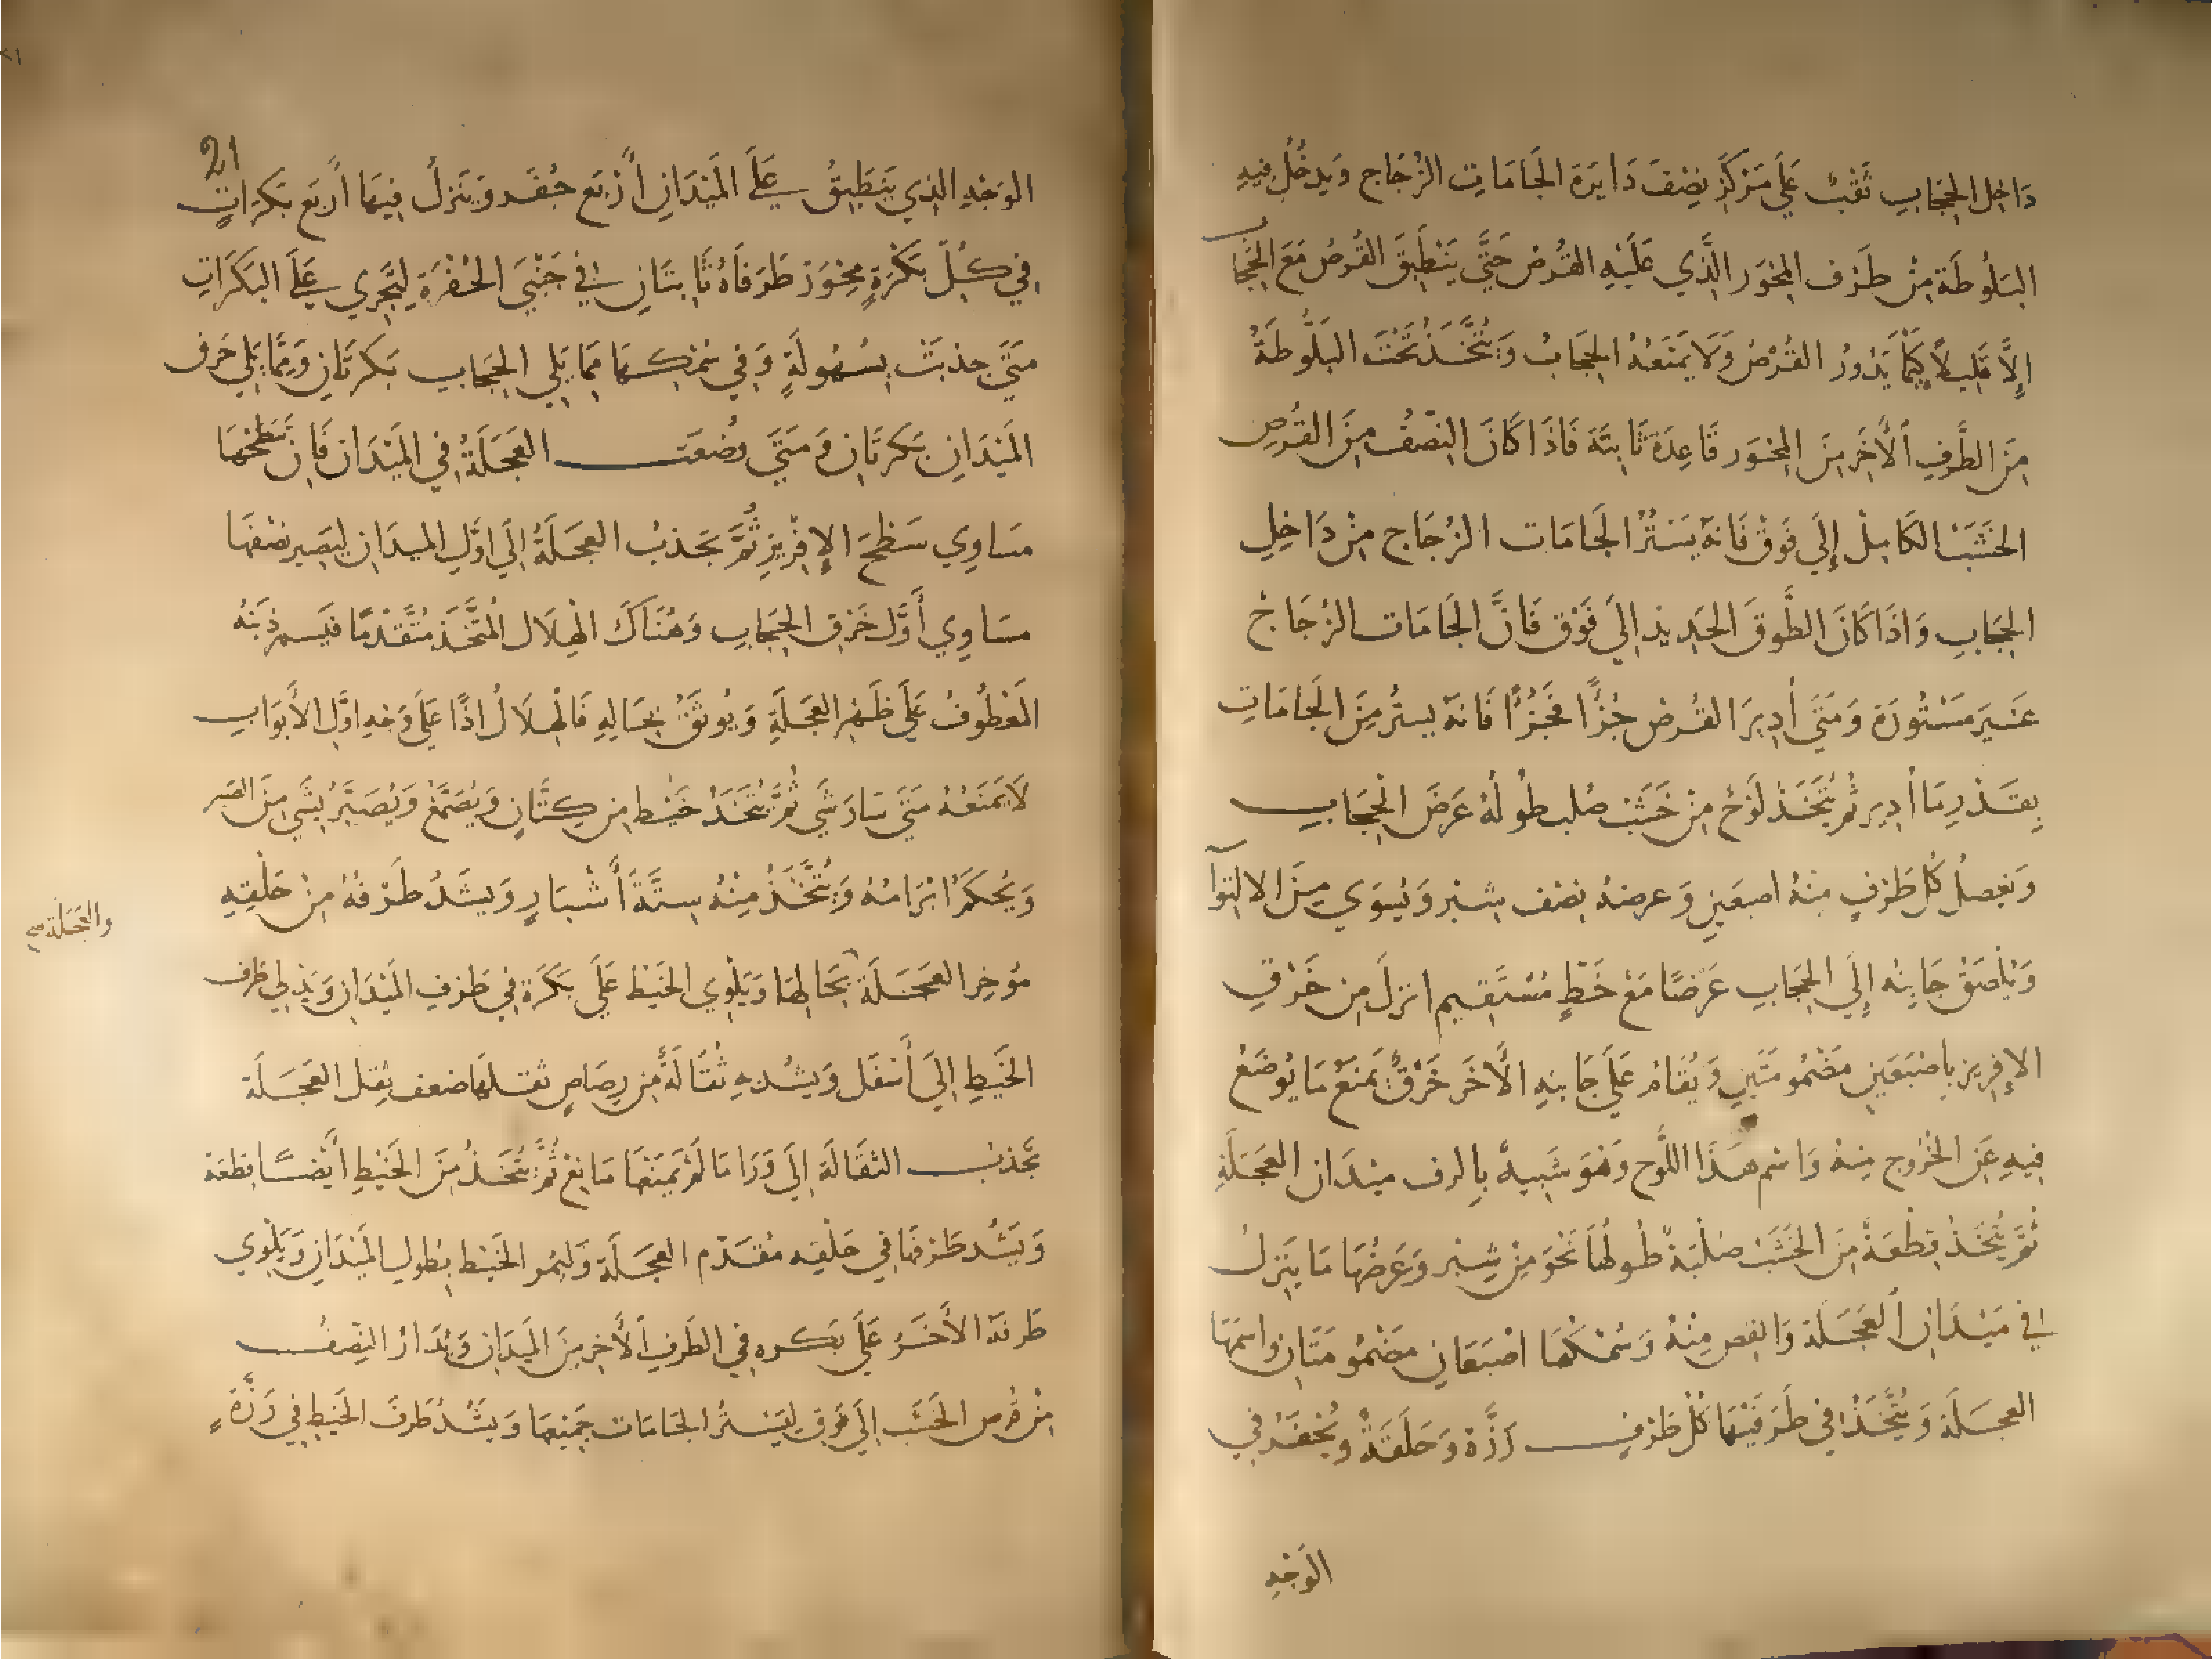 داخل الحجاب ثقب على مركز نصف دايرة الجامات الزجاج ويدخل فيه
البلوطة من طرف المحور الذي عليه القرص حتى ينطبق القرص مع الحجاب
إلا قليلا كيما يدور القرص ولا يمنعه الحجاب ويتخذ تحت البلوطة
من الطرف الأخر من المحور قاعدة ثابتة فاذا كان النصف من القرص
الخشب الكامل إلى فوق فانه يستر الجامات الزجاج من داخل
الحجاب واذا كان الطوق الحديد إلى فوق فان الجامات الزجاج
غير مستورة ومتى أدير القرص جزًا فجزًا فانه يستر من الجامات
بقدر ما أدير ثم يتخذ لوح من خشب صلب طوله عرض الحجاب
ويفصل كل طرف منه اصبعين وعرضه نصف شبر ويسوى من الالتوآ
ويلصق جانبه إلى الحجاب عرضًا مع خط مستقيم انزل من خرق
الإفريز باصبعين مضمومتين ويقام على جانبه الأخر خرق يمنع ما يوضع
فيه عن الخروج منه واسم هذا اللوح وهو شبيه بالرف ميدان العجلة
ثم يتخذ قطعة من الخشب صلبة طولها نحو من شبر وعرضها ما ينزل
في ميدان العجلة وانقص منه وسمكها اصبعان مضمومتان واسمها
العجلة ويتخذ في طرفيها كل طرف رزة وحلقة ويحفر في
الوجه
21
الوجه الذي ينطبق على الميدان أربع حفر وينزل فيها أربع بكرات
في كل بكرة محور طرفاه ثابتان في جنبي الحفرة لتجري على البكرات
متى جذبت بسهولة وفي سمكها مما يلي الحجاب بكرتان ومما يلي حرف
الميدان بكرتان ومتى وضعت العجلة في الميدان فان سطحها
مساوي سطح الإفريز ثم تجذب العجلة إلى اول الميدان ليصير نصفها
مساوي أول خرق الحجاب وهناك الهلال المتخذ متقدمًا فيسمر ذنبه
المعطوف على ظهر العجلة ويوثق بحاله فالهلال اذًا على وجه اول الأبواب
لا يمنعه متى سار شي ثم يتخذ خيط من كتان ويصمغ ويصبر بشي من الصبر
ويحكم ابرامه ويتخذ منه ستة أشبار ويشد طرفه من حلقه
موخر العجلة بحالها ويلوي الخيط على بكرة في طرف الميدان ويدلي طرف
والعجلة صح
الخيط إلى أسفل ويشد به ثقالة من رصاص ثقلها ضعف ثقل العجلة
تجذب الثقالة إلى ورا ما لم يمنعها مانع ثم يتخذ من الخيط أيضًا قطعة
ويشد طرفها في حلقه مقدم العجلة وليمر الخيط بطول الميدان ويلوي
طرفه الأخر على بكره في الطرف الأخر من الميدان ويدار النصف
من قرص الخشب إلى فوق ليستر الجامات جميعها ويشد طرف الخيط في رزة